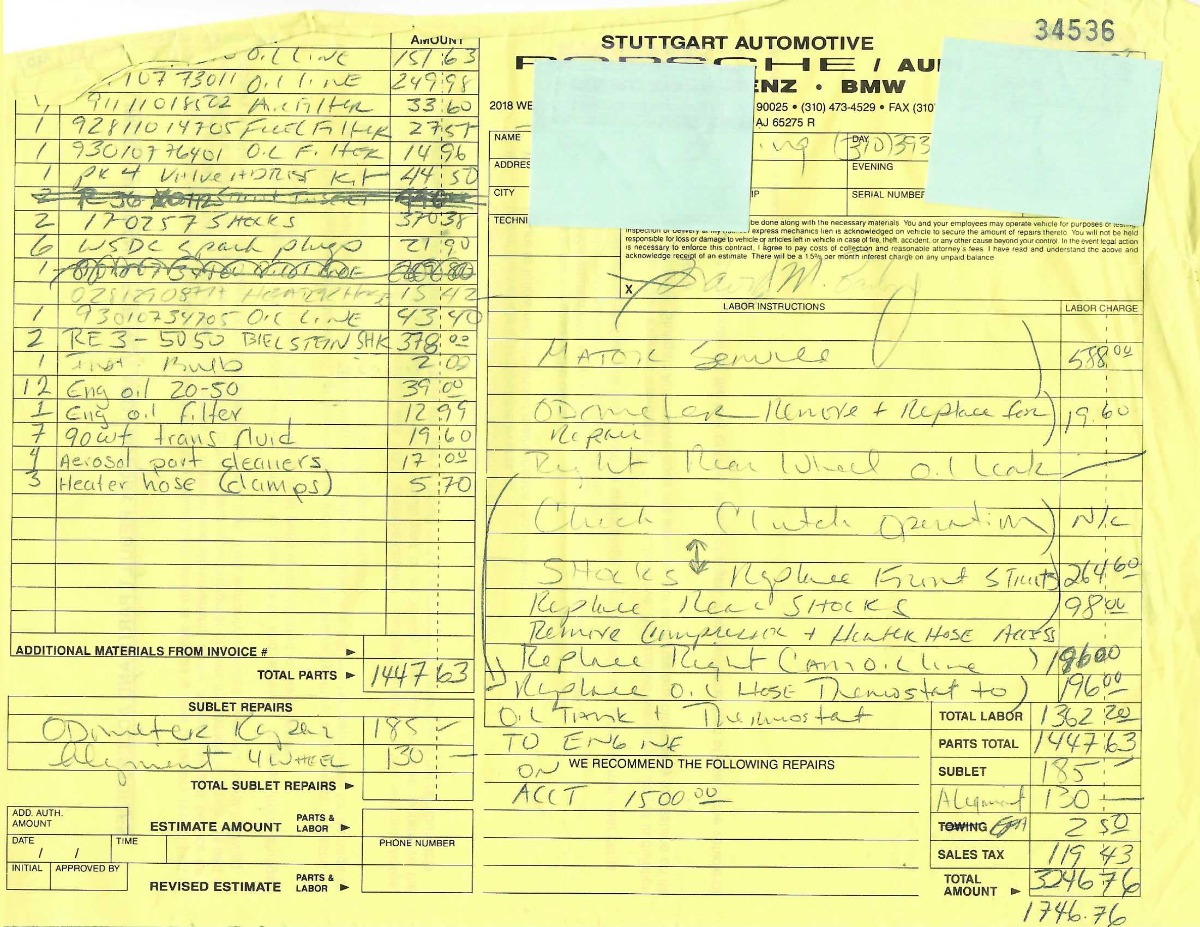 34536
AMOUNT
OIL LINE 151 63
107 73011 OIL LINE 249 98
33 60
1 92811014705 FUEL FILTER 27 51
1 93010776401 OIL FILTER 14 96
1 PK 4 VALVE ADJUST KIT 44 50
2 170257 SHOCKS 370 38
6 W5DC spark plugs 21 90
HEATER HOSE 15 42
1 93010734705 OIL LINE 43 40
2 RE3-5050 BIELSTEIN SHK 378 00
1 Inst. Bulb 2 00
12 Eng oil 20-50 39 00
1 Eng oil filter 12 99
7 90wt trans fluid 19 60
4 Aerosol part cleaners 17 00
3 Heater hose (clamps) 5 70
ADDITIONAL MATERIALS FROM INVOICE #
TOTAL PARTS 1447 63
SUBLET REPAIRS
ODometer Repair 185 -
Alignment 4 WHEEL 130 -
TOTAL SUBLET REPAIRS
ADD. AUTH. AMOUNT
ESTIMATE AMOUNT PARTS & LABOR
DATE / / TIME
PHONE NUMBER
INITIAL APPROVED BY
REVISED ESTIMATE PARTS & LABOR
STUTTGART AUTOMOTIVE
PORSCHE / AU
ENZ • BMW
2018 WE 90025 • (310) 473-4529 • FAX (310
AJ 65275 R
NAME ing DAY (310)393
ADDRES EVENING
CITY IP SERIAL NUMBER
TECHNI be done along with the necessary materials. You and your employees may operate vehicle for purposes of testing,
inspection or delivery at my express mechanics lien is acknowledged on vehicle to secure the amount of repairs thereto. You will not be held
responsible for loss or damage to vehicle or articles left in vehicle in case of fire, theft, accident, or any other cause beyond your control. In the event legal action
is necessary to enforce this contract, I agree to pay costs of collection and reasonable attorney's fees. I have read and understand the above and
acknowledge receipt of an estimate. There will be a 1.5% per month interest charge on any unpaid balance
X David M.
LABOR INSTRUCTIONS LABOR CHARGE
MAJOR Service 588 00
ODometer Remove + Replace for 19.60
Repair
Right Rear Wheel oil leak
Check Clutch operation N/C
SHOCKS Replace Front Struts 264 60
Replace Rear SHOCKS 98 00
Remove Compressor + HEATER HOSE ACCESS
Replace Right Cam oil line 196 00
Replace Oil HOSE Thermostat to 196 00
Oil TANK + Thermostat
TO ENGINE
WE RECOMMEND THE FOLLOWING REPAIRS
ON
ACCT 1500 00
TOTAL LABOR 1362 20
PARTS TOTAL 1447 63
SUBLET 185 -
Alignment 130 -
TOWING EPA 2 50
SALES TAX 119 43
TOTAL AMOUNT 3246 76
1746.76